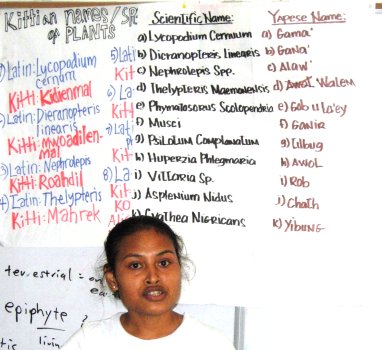 Kittian names/SP.
of PLANTS
Latin: Lycopodium
cernum
Kitti: Kidienmal
Latin: Dieranopteris
linearis
Kitti: mwoadilen-
mal
3) Latin: Nephrolepis
Kitti: Roahdil
4) Latin: Thelypteris
Kitti: Mahrek
5) Lati
Kit
6) La
Kit
Lati
Kit
8) La
Kit
KO
Scientific Name:
a) Lycopodium Cernium
b) Dicranopteris Linearis
c) Nephrolepis Spp.
d) Thelypteris Maemonensis
e) Phymatosorus Scolopendria
f) Musci
g) Psilolum Complanatum
h) Huperzia Phlegmaria
i) Vittaria Sp.
j) Asplenium Nidus
k) Cyathea Nigricans
Yapese Name:
a) Gamaʼ
b) Ganaʼ
c) Alawʼ
d) Walem
e) Gob u la'ey
f) Gamir
g) Tilbug
h) Awol
i) Rob
j) Chath
k) Yibung
terrestrial =
epiphyte
livin